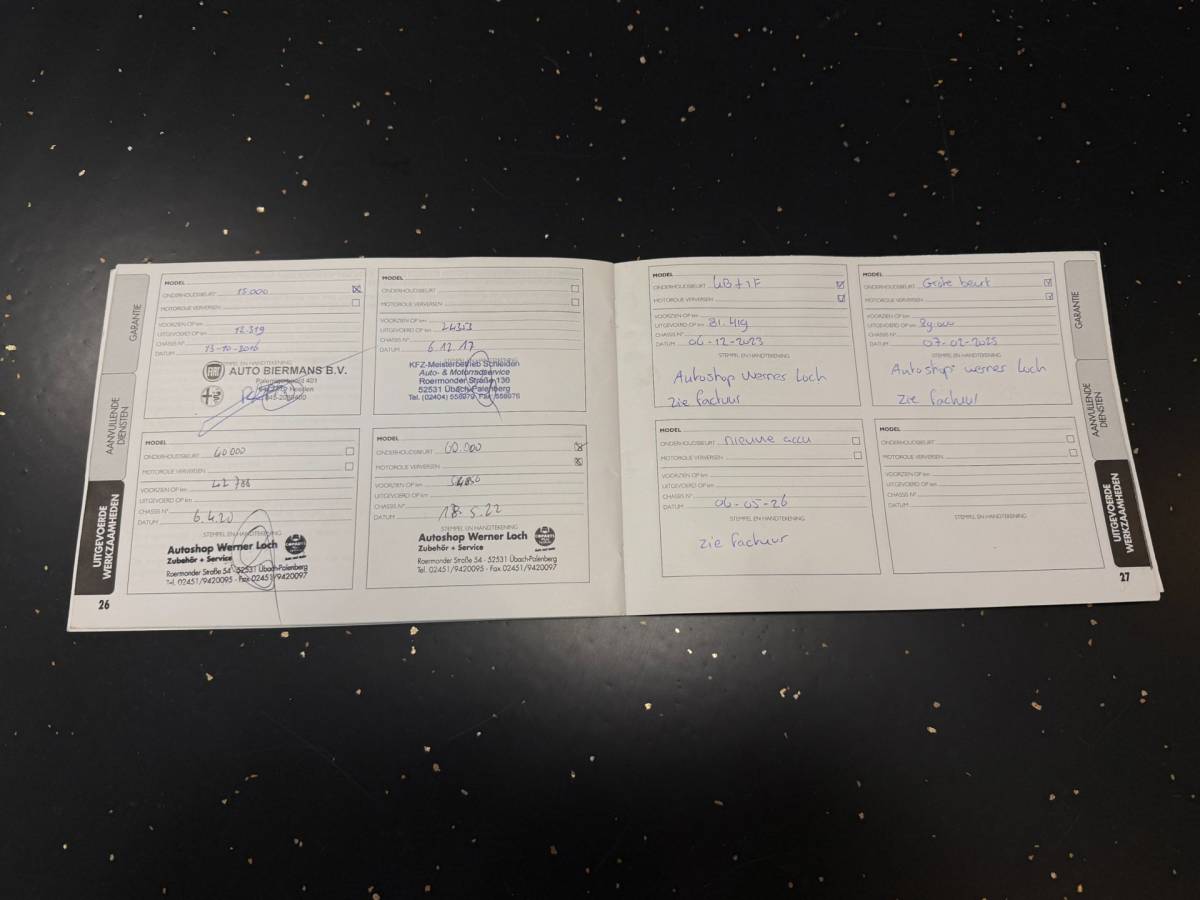 GARANTIE
AANVULLENDE
DIENSTEN
UITGEVOERDE
WERKZAAMHEDEN
26
MODEL
ONDERHOUDSBEURT 15.000
MOTOROLIE VERVERSEN
VOORZIEN OP km
UITGEVOERD OP km 12.319
CHASSIS N°
DATUM 13-10-2016
STEMPEL EN HANDTEKENING
FIAT AUTO BIERMANS B.V.
401
Heerlen
MODEL
ONDERHOUDSBEURT
MOTOROLIE VERVERSEN
VOORZIEN OP km
UITGEVOERD OP km 24353
CHASSIS N°
DATUM 6.12.17
STEMPEL EN HANDTEKENING
KFZ-Meisterbetrieb Schleiden
Auto- & Motorradservice
Roermonder Straße 130
52531 Übach-Palenberg
Tel. (02404) 558979 Fax 558978
MODEL
ONDERHOUDSBEURT 40 000
MOTOROLIE VERVERSEN
VOORZIEN OP km 42 786
UITGEVOERD OP km
CHASSIS N°
DATUM 6.4.20
STEMPEL EN HANDTEKENING
Autoshop Werner Loch
Zubehör + Service
Roermonder Straße 54 · 52531 Übach-Palenberg
Tel. 02451/9420095 · Fax 02451/9420097
MODEL
ONDERHOUDSBEURT 60.000
MOTOROLIE VERVERSEN
VOORZIEN OP km
UITGEVOERD OP km
CHASSIS N°
DATUM 18.5.22
STEMPEL EN HANDTEKENING
Autoshop Werner Loch
Zubehör + Service
Roermonder Straße 54 · 52531 Übach-Palenberg
Tel. 02451/9420095 · Fax 02451/9420097
MODEL
ONDERHOUDSBEURT GB + IF
MOTOROLIE VERVERSEN
VOORZIEN OP km
UITGEVOERD OP km 81.419
CHASSIS N°
DATUM 06-12-2023
STEMPEL EN HANDTEKENING
Autoshop Werner Loch
zie factuur
MODEL
ONDERHOUDSBEURT Grote beurt
MOTOROLIE VERVERSEN
VOORZIEN OP km
UITGEVOERD OP km 89.000
CHASSIS N°
DATUM 07-02-2025
STEMPEL EN HANDTEKENING
Autoshop werner Loch
zie factuur
MODEL
ONDERHOUDSBEURT nieuwe accu
MOTOROLIE VERVERSEN
VOORZIEN OP km
UITGEVOERD OP km
CHASSIS N°
DATUM 06-05-26
STEMPEL EN HANDTEKENING
zie factuur
MODEL
ONDERHOUDSBEURT
MOTOROLIE VERVERSEN
VOORZIEN OP km
UITGEVOERD OP km
CHASSIS N°
DATUM
STEMPEL EN HANDTEKENING
GARANTIE
AANVULLENDE
DIENSTEN
UITGEVOERDE
WERKZAAMHEDEN
27